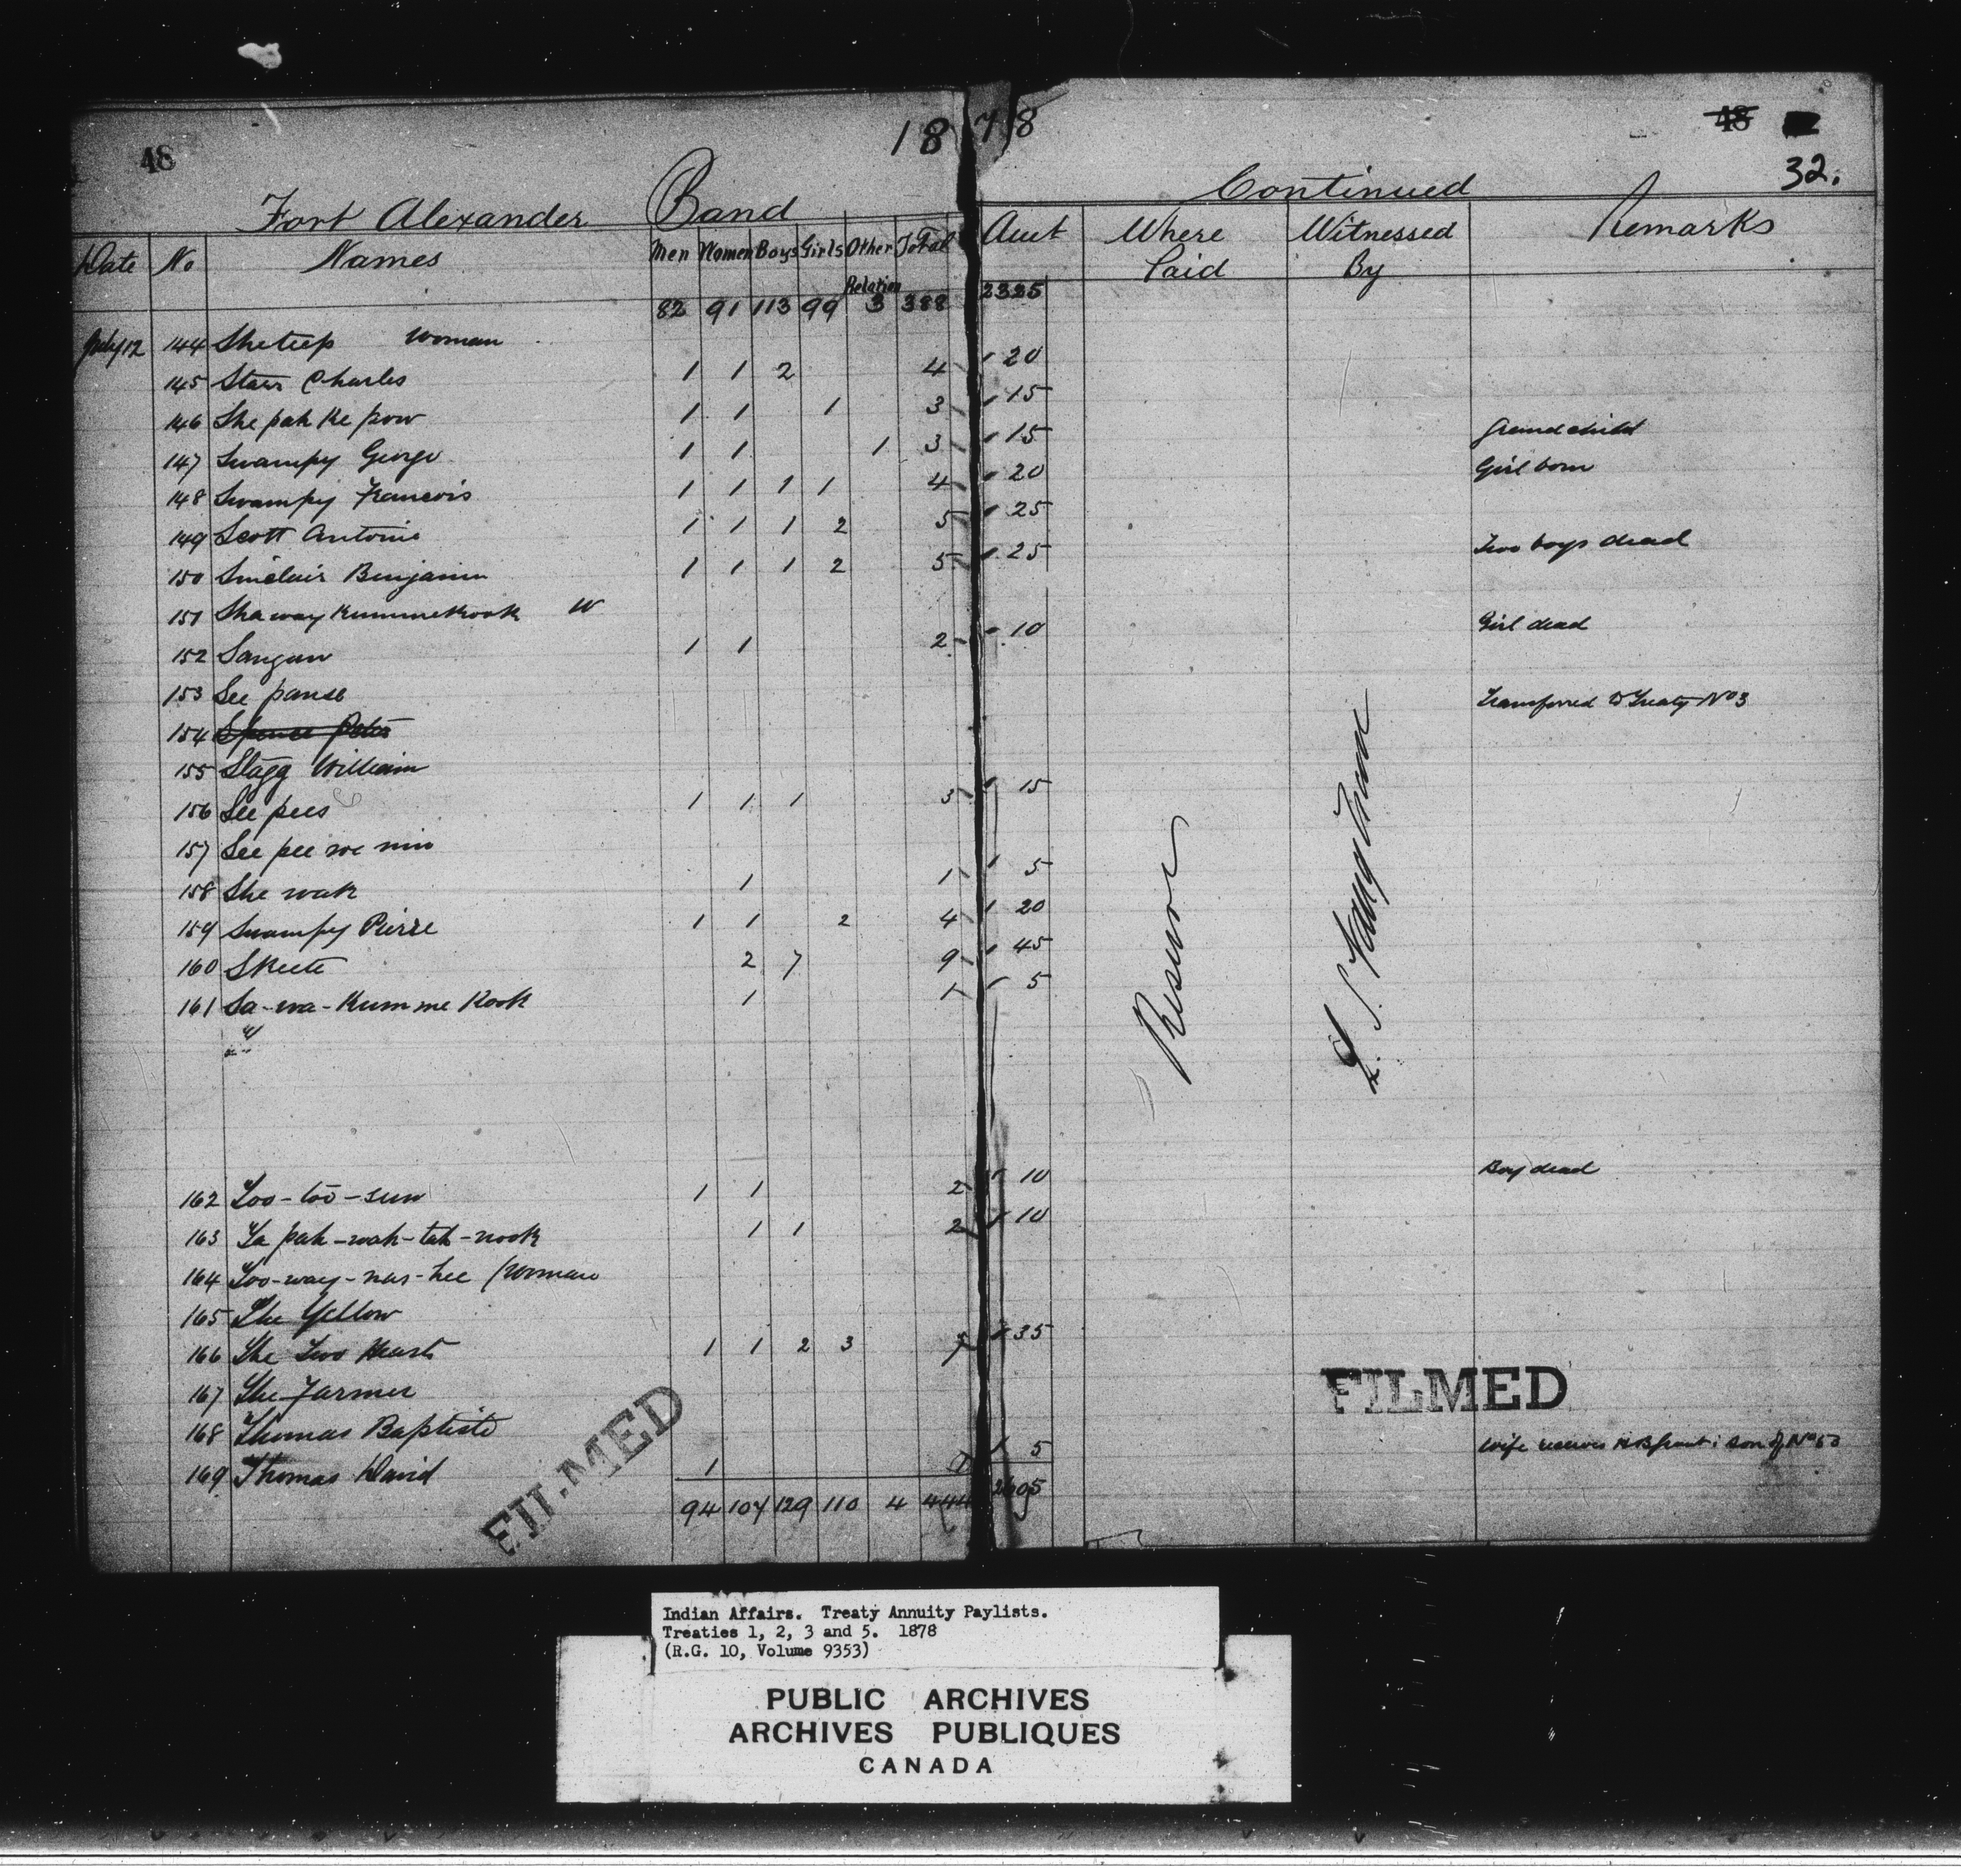 48 1878 48
32.
Fort Alexander Band Continued
Date No Names Men Women Boys Girls Other Relation Total Amt Where Paid Witnessed By Remarks
82 91 113 99 3 388 2325
July 12 144 Sheteep Woman
145 Starr Charles 1 1 2 4 20
146 She pah ke pow 1 1 1 3 15
147 Swampy George 1 1 1 3 15 Grandchild
148 Swampy Francois 1 1 1 1 4 20 Girl born
149 Scott Antoine 1 1 1 2 5 25
150 Sinclair Benjamin 1 1 1 2 5 25 Two boys dead
151 Shaway kummekook W
152 Sangun 1 1 2 10 Girl dead
153 See panse
154 Spence Peter Transferred to Treaty No 3
155 Stagg William
156 See pees 1 1 1 3 15
157 See pee we min
158 She wak 1 1 5
159 Swampy Pierre 1 1 2 4 20
160 Skeete 2 7 9 45
161 Sa-wa-kum me kook 1 1 5
Reserve
162 Too-too-sun 1 1 2 10 Boy dead
163 Ta pah-wah-tah-nook 1 1 2 10
164 Too-way-nas-hee (Woman
165 The Yellow
166 The Two Hearts 1 1 2 3 7 35
167 The Farmer
168 Thomas Baptiste
169 Thomas David 1 1 5 Wife receives son of No
94 107 129 110 4 444 2605
FILMED
FILMED
Indian Affairs. Treaty Annuity Paylists.
Treaties 1, 2, 3 and 5. 1878
(R.G. 10, Volume 9353)
PUBLIC ARCHIVES
ARCHIVES PUBLIQUES
CANADA